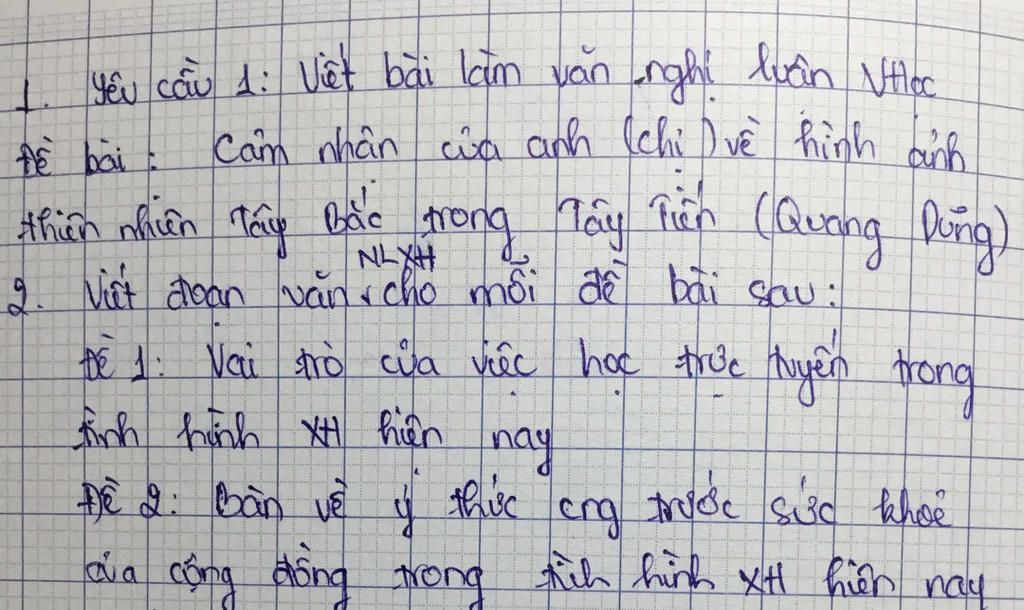 1. Yêu cầu 1: Viết bài làm văn nghị luận VHọc
Đề bài: Cảm nhận của anh (chị) về hình ảnh
thiên nhiên Tây Bắc trong Tây Tiến (Quang Dũng)
NLXH
2. Viết đoạn văn cho mỗi đề bài sau:
Đề 1: Vai trò của việc học trực tuyến trong
tình hình XH hiện nay
Đề 2: Bàn về ý thức cng trước sức khoẻ
của cộng đồng trong tình hình XH hiện nay